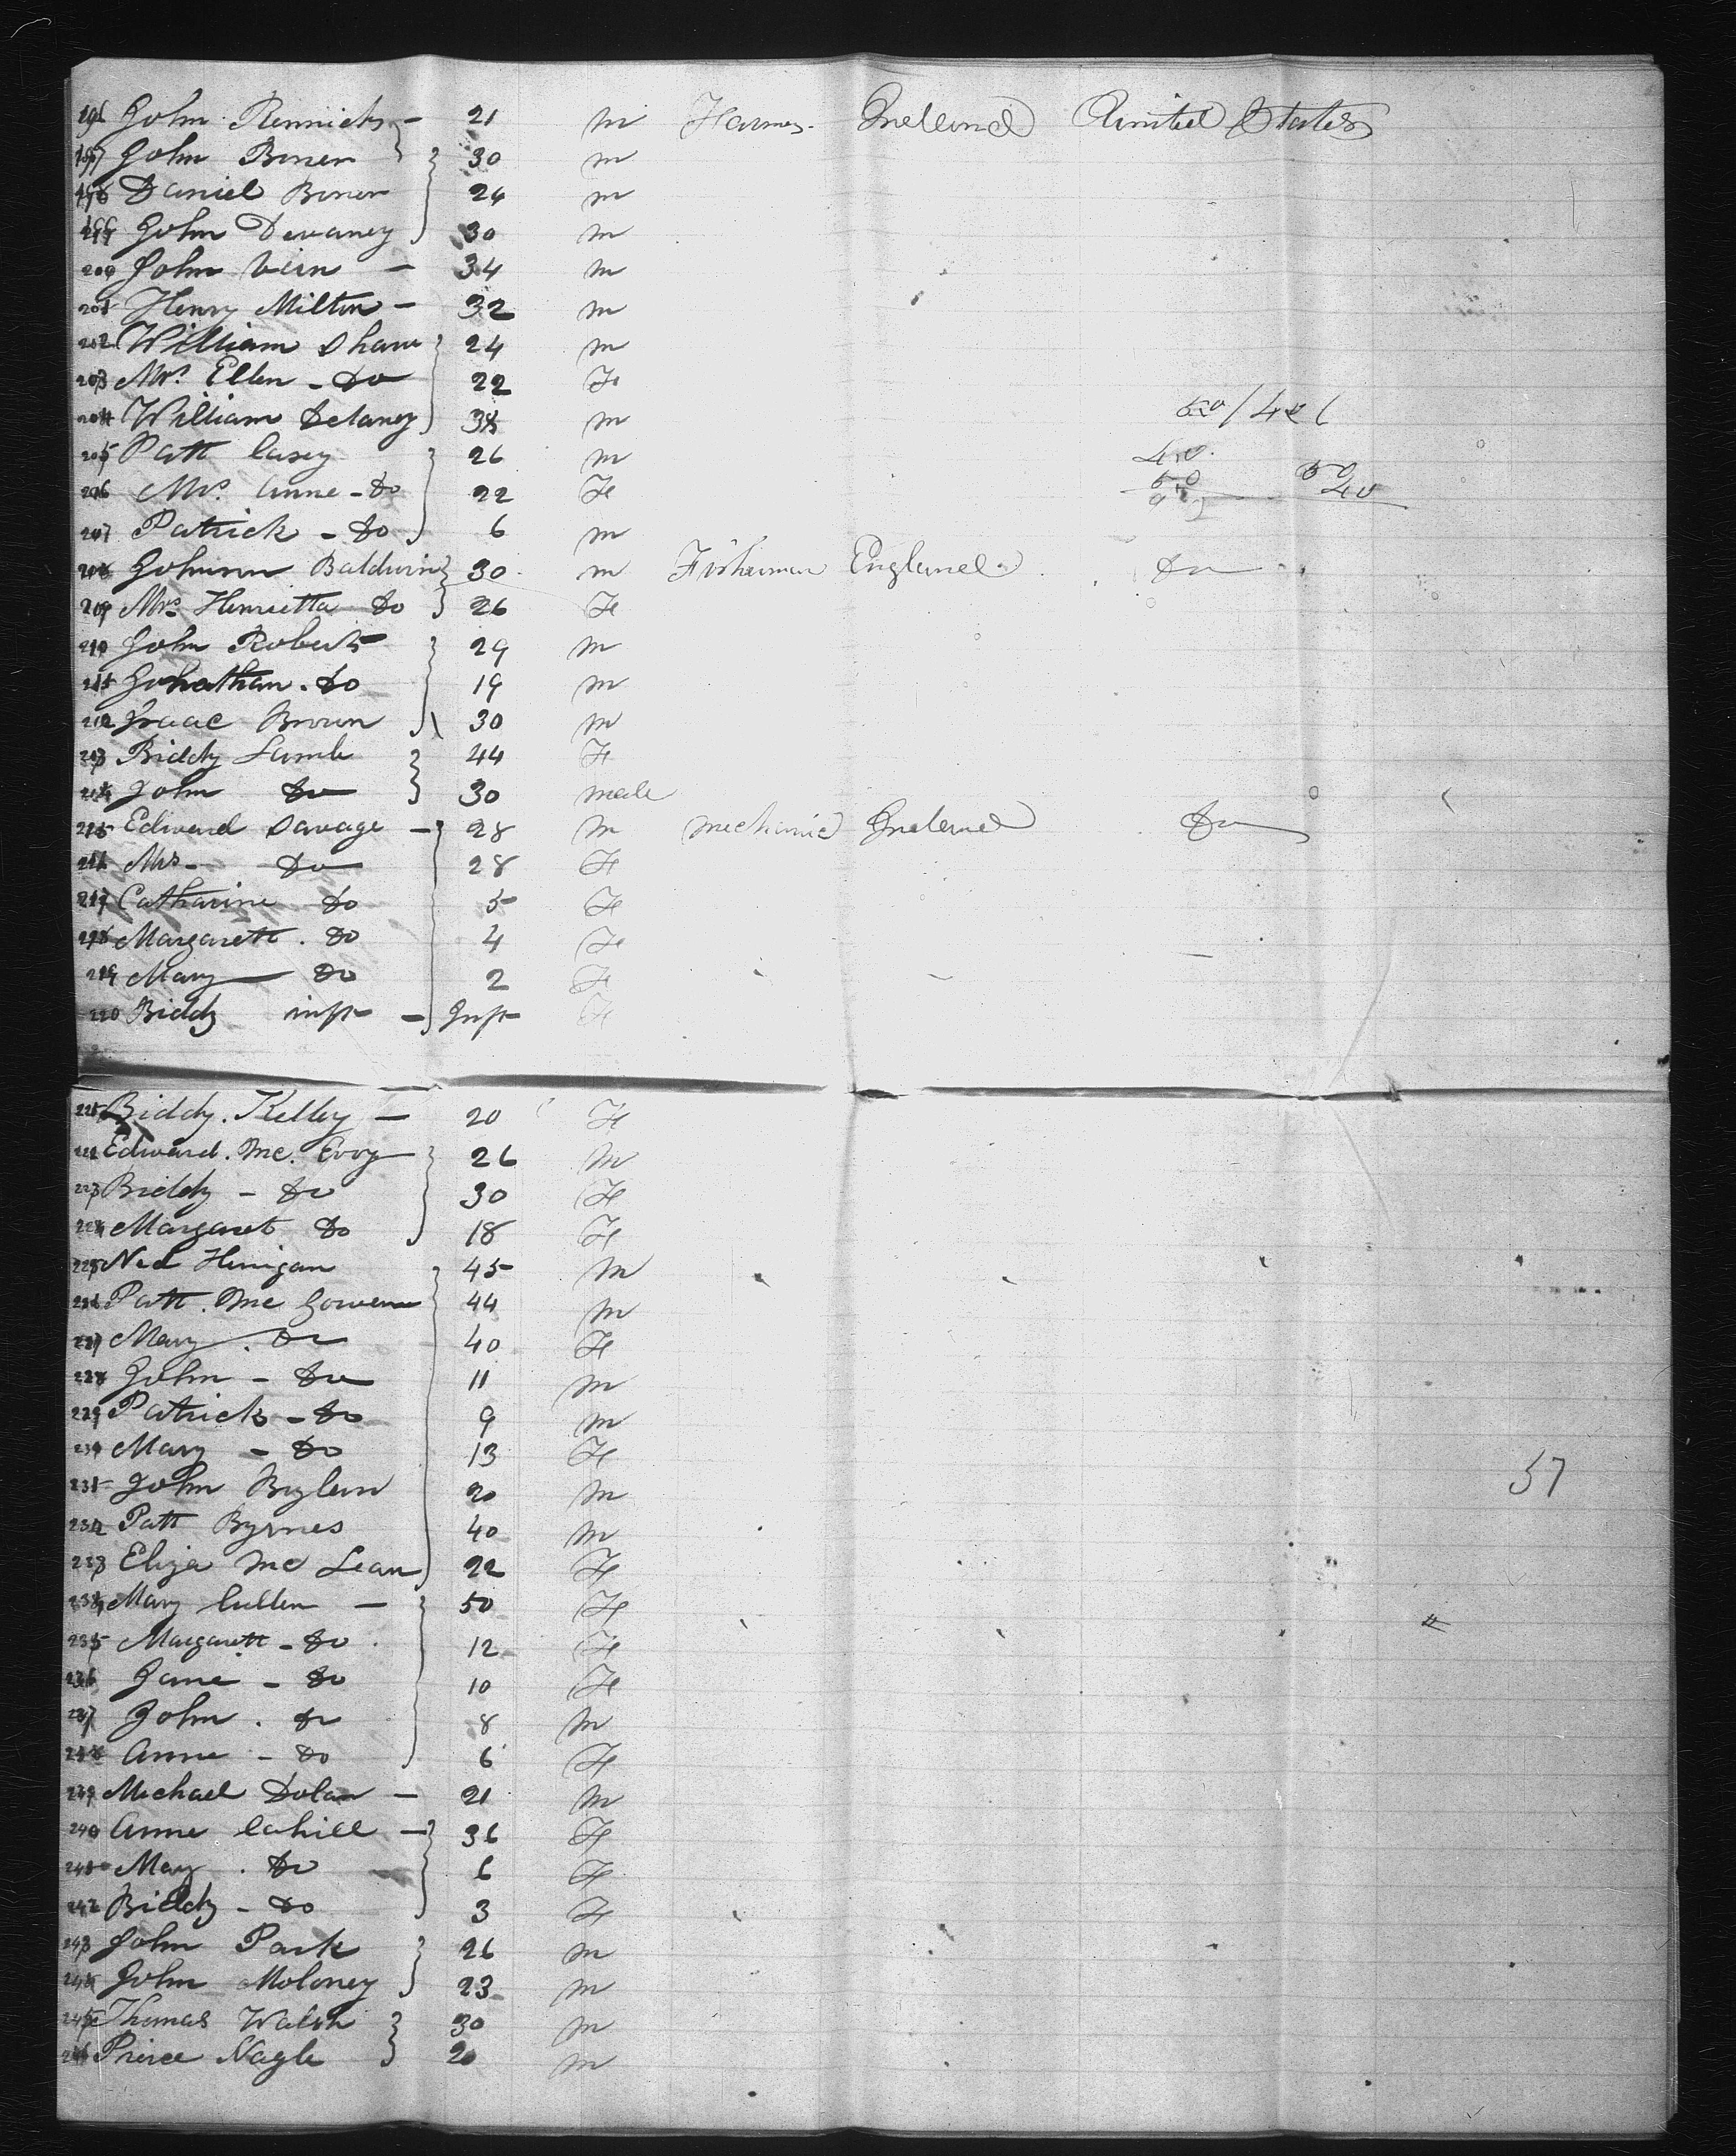 196 John Rennicks - 21 m Farmer Ireland United States
197 John Boner 30 m
198 Daniel Boner 24 m
199 John Devaney 30 m
200 John Vein - 34 m
201 Henry Milton - 32 m
202 William Shaw 24 m
203 Mrs. Ellen - Do 22 F
204 William Delaney 38 m
205 Patt Casey 26 m
206 Mrs. Anne - Do 22 F
207 Patrick - Do 6 m
208 Johnson Baldwin 30 m Fisherman England Do
209 Mrs Henrietta Do 26 F
210 John Roberts 29 m
211 Jonathan. Do 19 m
212 Isaac Brown 30 m
213 Biddy Lamb 44 F
214 John Do 30 male
215 Edward Savage - 28 m mechanic Ireland Do
216 Mrs - Do 28 F
217 Catharine Do 5 F
218 Margarett. Do 4 F
219 Mary Do 2 F
220 Biddy inft - Inft F
221 Biddy. Kelley - 20 F
222 Edward. Mc. Evoy 26 m
223 Biddy - Do 30 F
224 Margaret Do 18 F
225 Ned Hinigan 45 m
226 Patt. Mc Gowern 44 m
227 Mary. Do 40 F
228 John - Do 11 m
229 Patrick - Do 9 m
230 Mary - Do 13 F
57
231 John 20 m
232 Patt Byrnes 40 m
233 Eliza Mc Lean 22 F
234 Mary Cullen - 50 F
235 Margarett - Do. 12 F
236 Jane - Do 10 F
237 John. Do 8 m
238 Anne - Do 6 F
239 Michael Dolan - 21 m
240 Anne Cahill - 36 F
241 Mary. Do 6 F
242 Biddy - Do 3 F
243 John Park 26 m
244 John Moloney 23 m
245 Thomas Walsh 30 m
246 Pierce Nagle 20 m